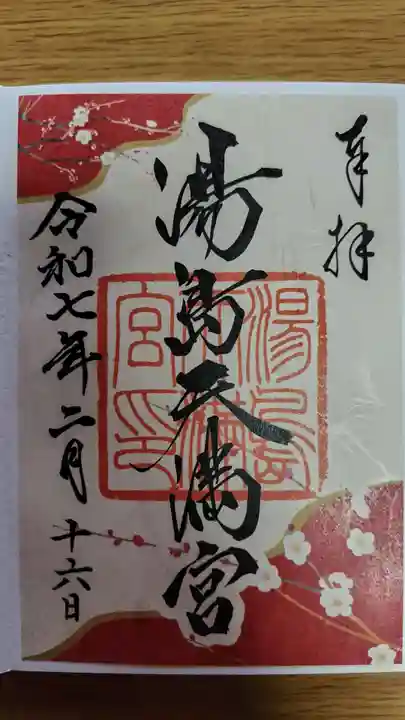 奉拝
湯島天満宮
湯島天満宮印
令和七年二月十六日